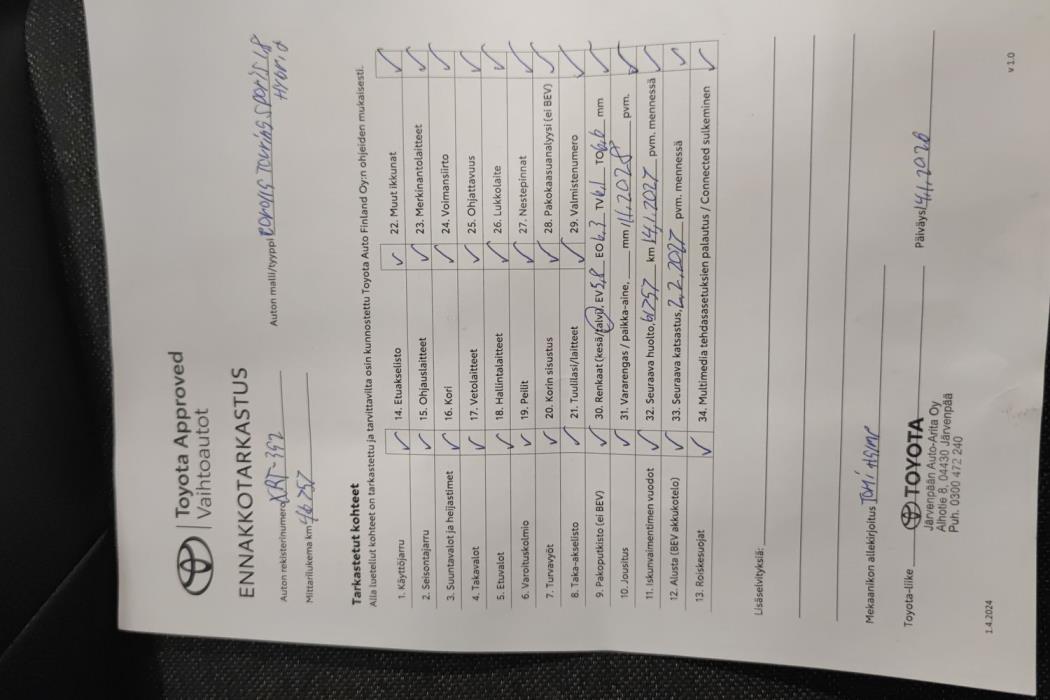 Toyota Approved
Vaihtoautot
ENNAKKOTARKASTUS
Auton rekisterinumero XRT-392
Auton malli/tyyppi corolla Touring Sports 1.8
Hybrid
Mittarilukema km 46757
Tarkastetut kohteet
Alla luetellut kohteet on tarkastettu ja tarvittavilta osin kunnostettu Toyota Auto Finland Oy:n ohjeiden mukaisesti.
1. Käyttöjarru ✓ 14. Etuakselisto ✓ 22. Muut ikkunat ✓
2. Seisontajarru ✓ 15. Ohjauslaitteet ✓ 23. Merkinantolaitteet ✓
3. Suuntavalot ja heijastimet ✓ 16. Kori ✓ 24. Voimansiirto ✓
4. Takavalot ✓ 17. Vetolaitteet ✓ 25. Ohjattavuus ✓
5. Etuvalot ✓ 18. Hallintalaitteet ✓ 26. Lukkolaite ✓
6. Varoituskolmio ✓ 19. Peilit ✓ 27. Nestepinnat ✓
7. Turvavyöt ✓ 20. Korin sisustus ✓ 28. Pakokaasuanalyysi (ei BEV) ✓
8. Taka-akselisto ✓ 21. Tuulilasi/laitteet ✓ 29. Valmistenumero ✓
9. Pakoputkisto (ei BEV) ✓ 30. Renkaat (kesä/talvi), EV 5,8 EO 6,3 TV 6,1 TO 6,6 mm ✓
10. Jousitus ✓ 31. Vararengas / paikka-aine, mm / 11.2028 pvm. ✓
11. Iskunvaimentimen vuodot ✓ 32. Seuraava huolto, 61757 km 14.1.2027 pvm. mennessä ✓
12. Alusta (BEV akkukotelo) ✓ 33. Seuraava katsastus, 2.2.2027 pvm. mennessä ✓
13. Roiskesuojat ✓ 34. Multimedia tehdasasetuksien palautus / Connected sulkeminen ✓
Lisäselvityksiä:
Mekaanikon allekirjoitus
Toyota-liike
TOYOTA
Järvenpään Auto-Arita Oy
Alhotie 8, 04430 Järvenpää
Puh. 0300 472 240
Päiväys 14.1.2026
1.4.2024
v 1.0